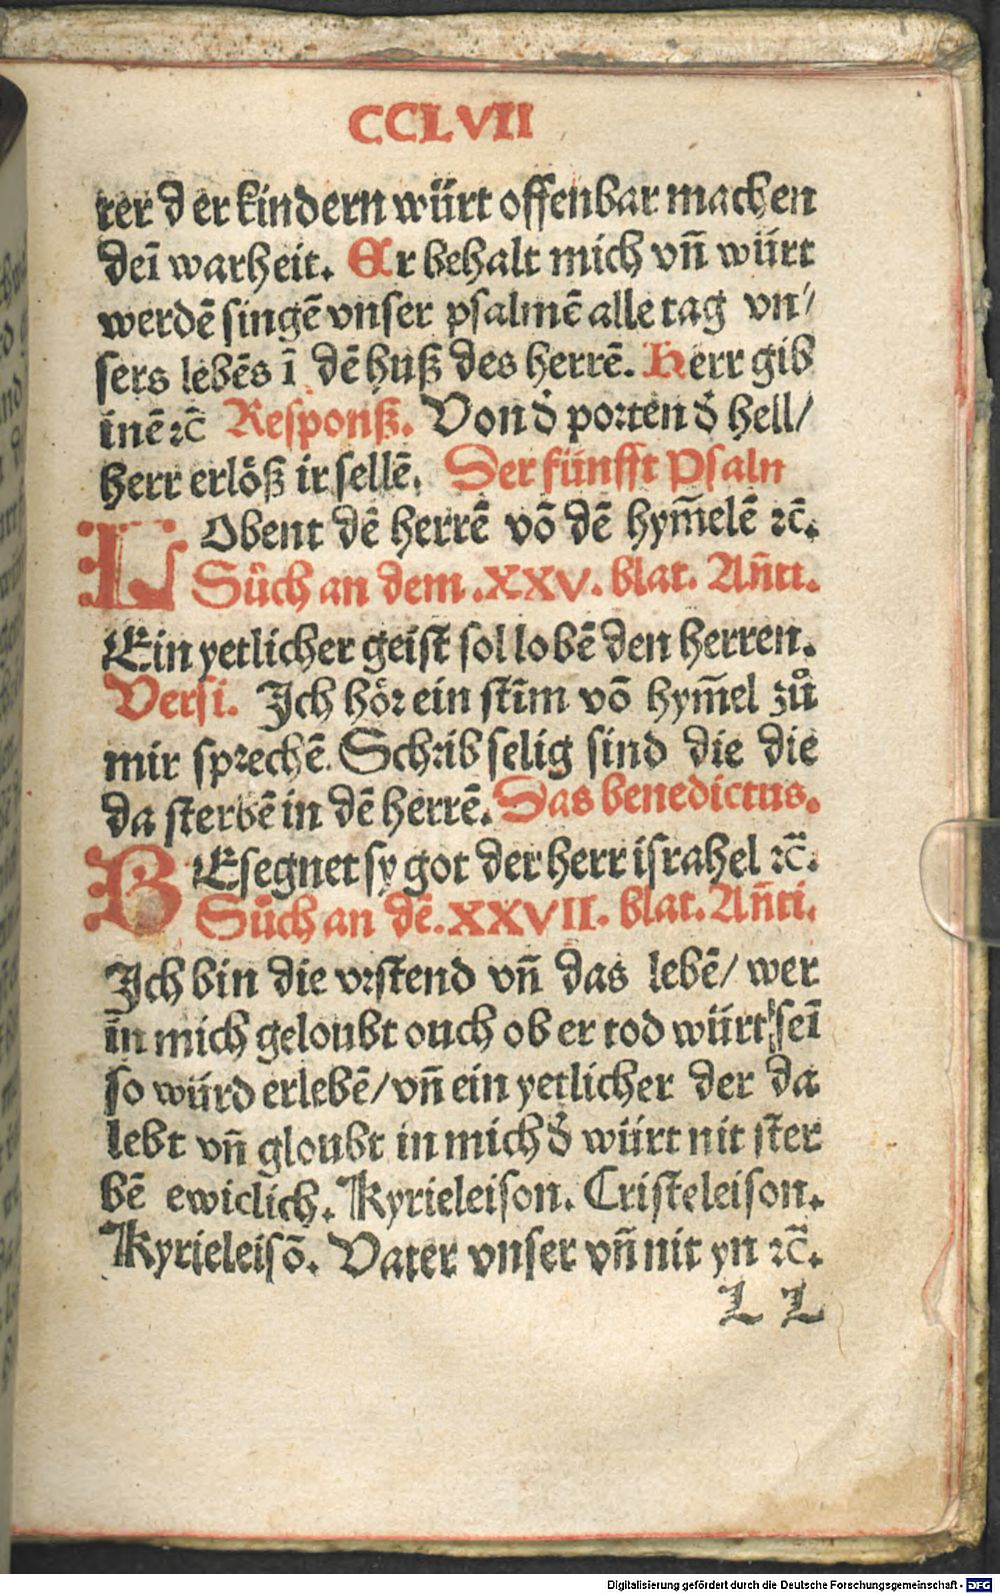 CCLVII
ter d er kindern würt offenbar machen
deī warheit. Er behalt mich vn̄ würt
werdē singē vnser psalmē alle tag vn/
sers lebēs ī dē huß des herrē. Herr gib
inē ⁊c̄ Responß. Von d̓ porten d̓ hell/
herr erlöß ir sellē. Der fünfft Psaln
LObent dē herrē vō dē hym̄elē ⁊c̄.
Sůch an dem .XXV. blat. An̄ti.
Ein yetlicher geist sol lobē den herren.
Versi. Jch hör ein stīm vō hym̄el zů
mir sprechē. Schrib selig sind die die
da sterbē in dē herrē. Das benedictus.
BEsegnet sy got der herr israhel ⁊c̄.
Sůch an dē .XXVII. blat. An̄ti.
Jch bin die vrstend vn̄ das lebē/ wer
in mich geloubt ouch ob er tod würt seī
so würd er lebē/ vn̄ ein yetlicher der da
lebt vn̄ gloubt in mich d̓ würt nit ster
bē ewiclich. Kyrieleison. Cristeleison.
Kyrieleisō. Vater vnser vn̄ nit yn ⁊c̄.
L L
Digitalisierung gefördert durch die Deutsche Forschungsgemeinschaft - DFG